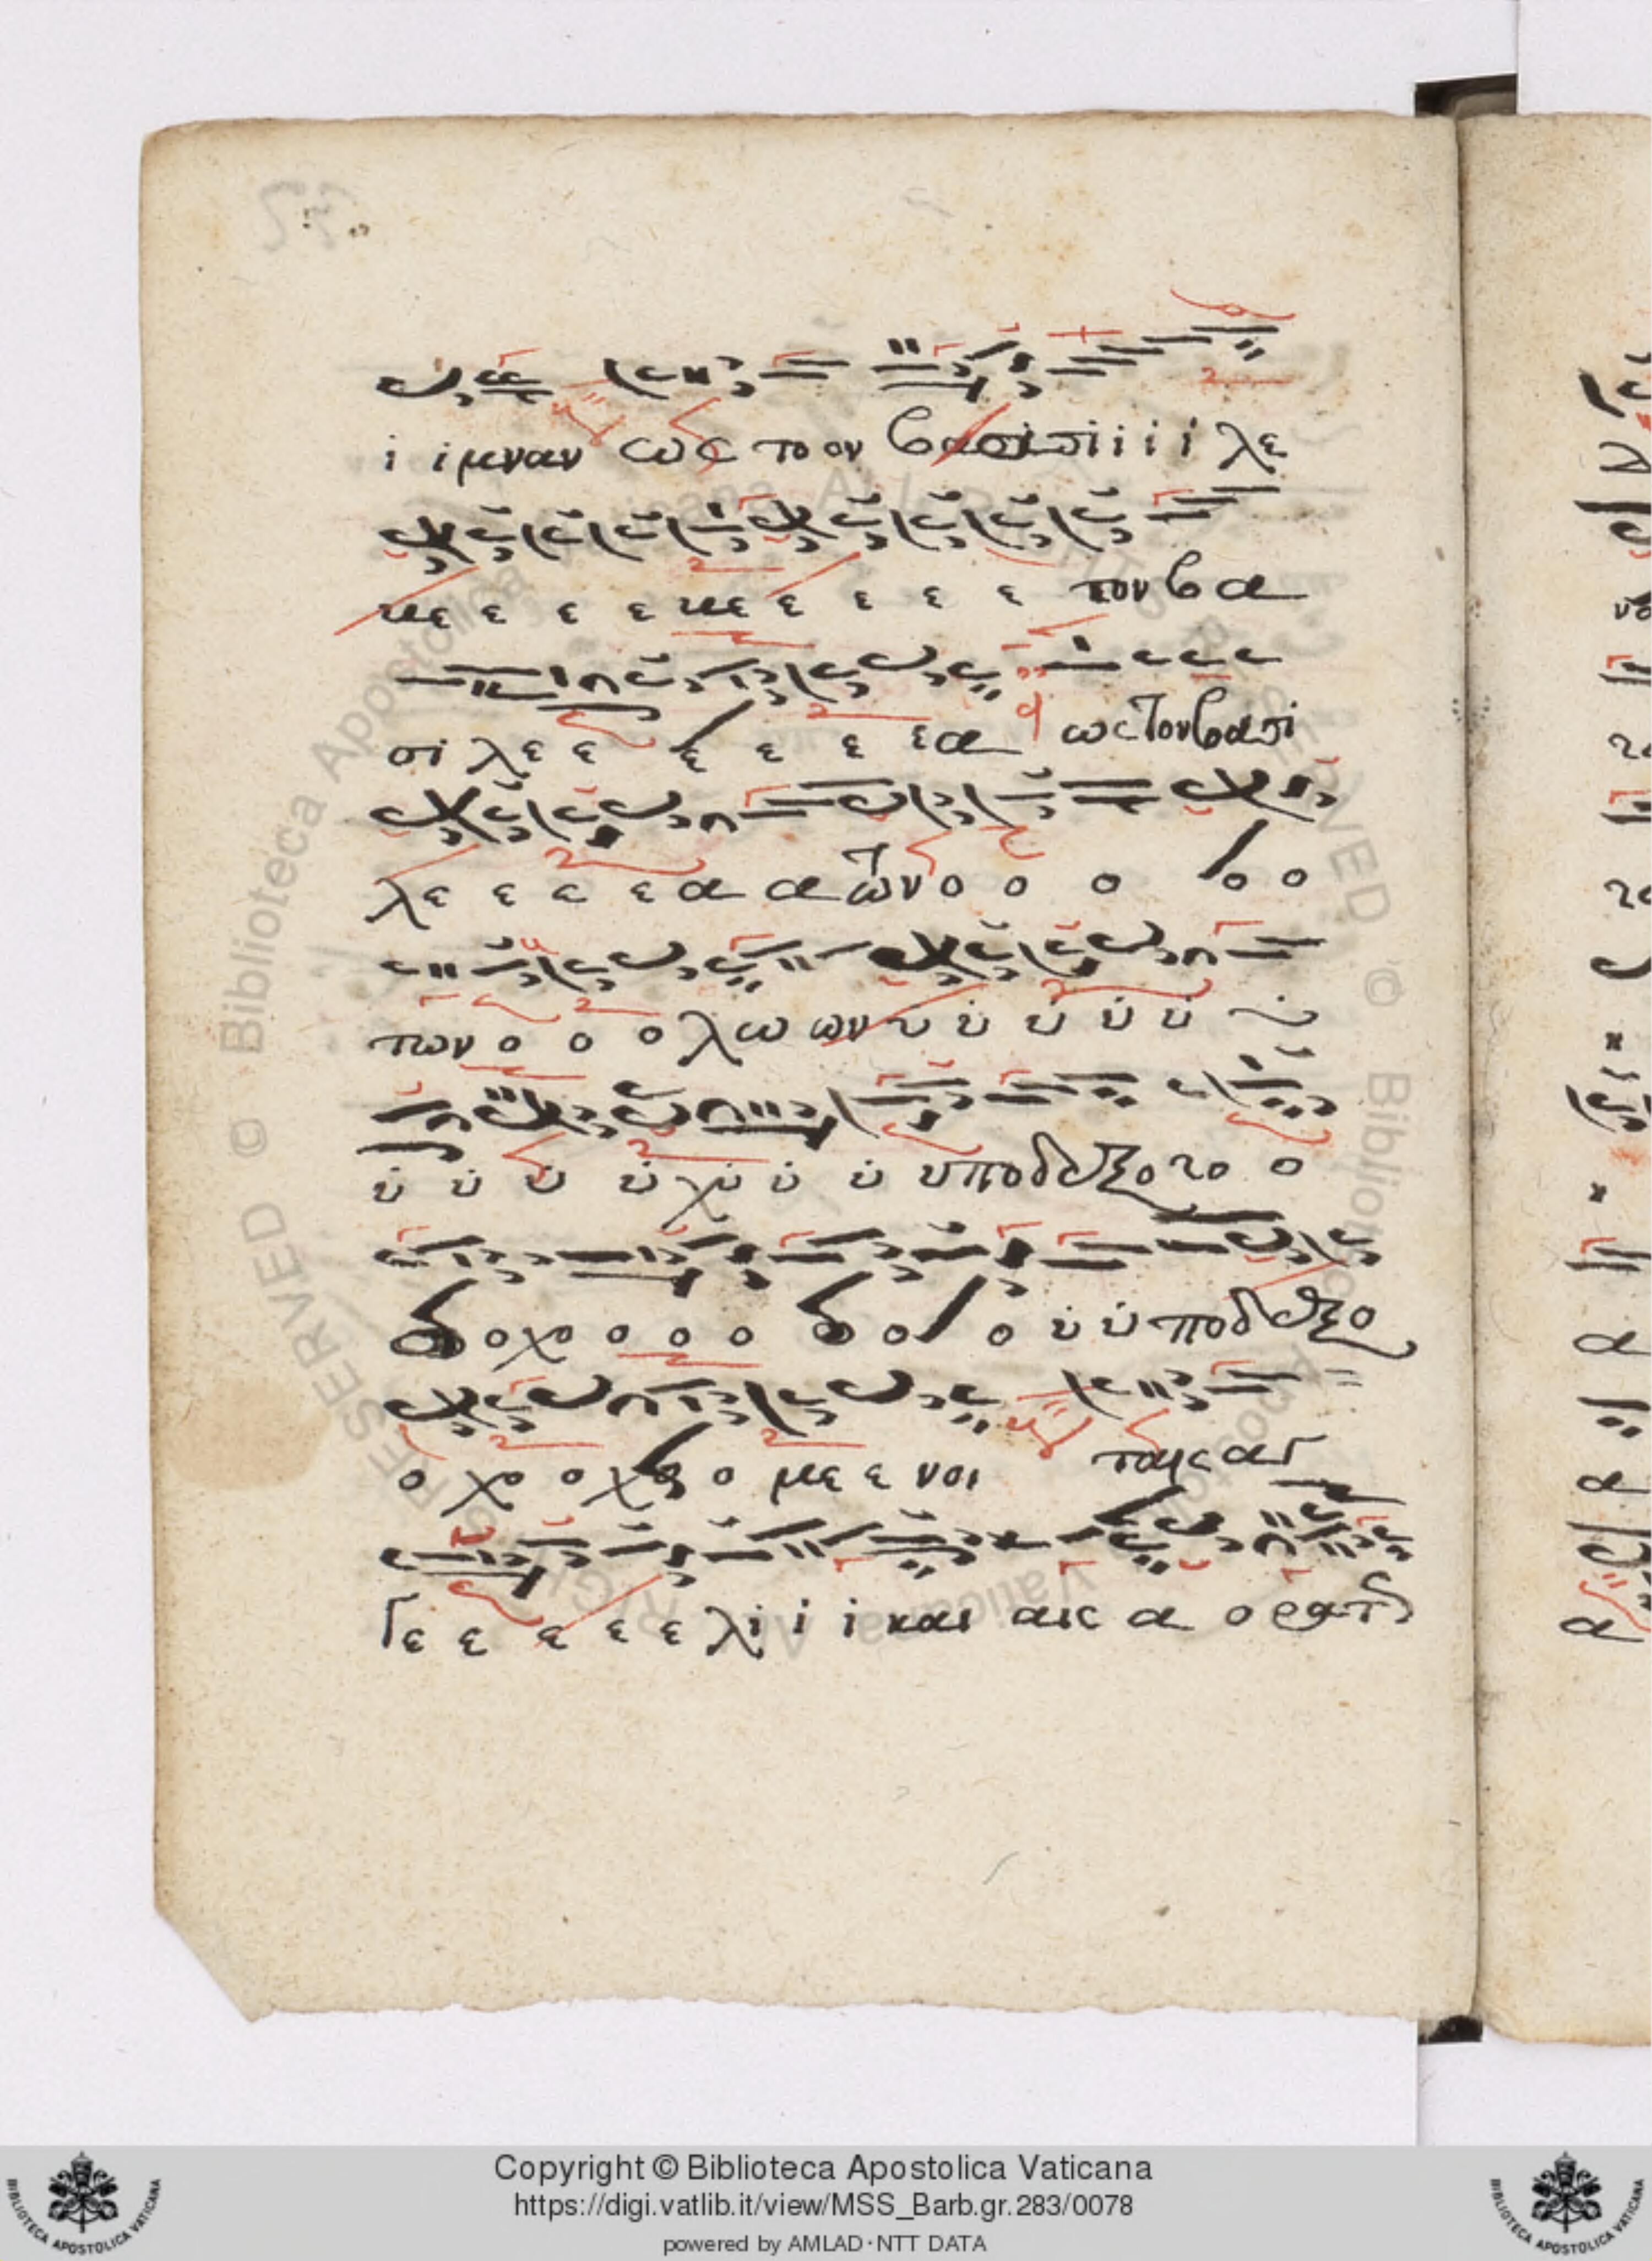 ι ι μναν ως το ον βα σι σι ι ι ι λε
χε ε ε ε χε ε ε ε ε τον βα
σι λε ε ε ε ε ε α ως τον βα σι
λε ε ε ε α α των ο ο ο ο ο
των ο ο ο λω ων υ υ υ υ υ
υ υ υ υ χυ υ υ υποδεξο το ο
ο χο ο ο ο ο ο υ υ ποδεξο
ο χο ο χο ο με ε νοι ταις αγ
γε ε ε ε ε λι ι ι και αις α ο ρα τ
Copyright © Biblioteca Apostolica Vaticana
https://digi.vatlib.it/view/MSS_Barb.gr.283/0078
powered by AMLAD·NTT DATA